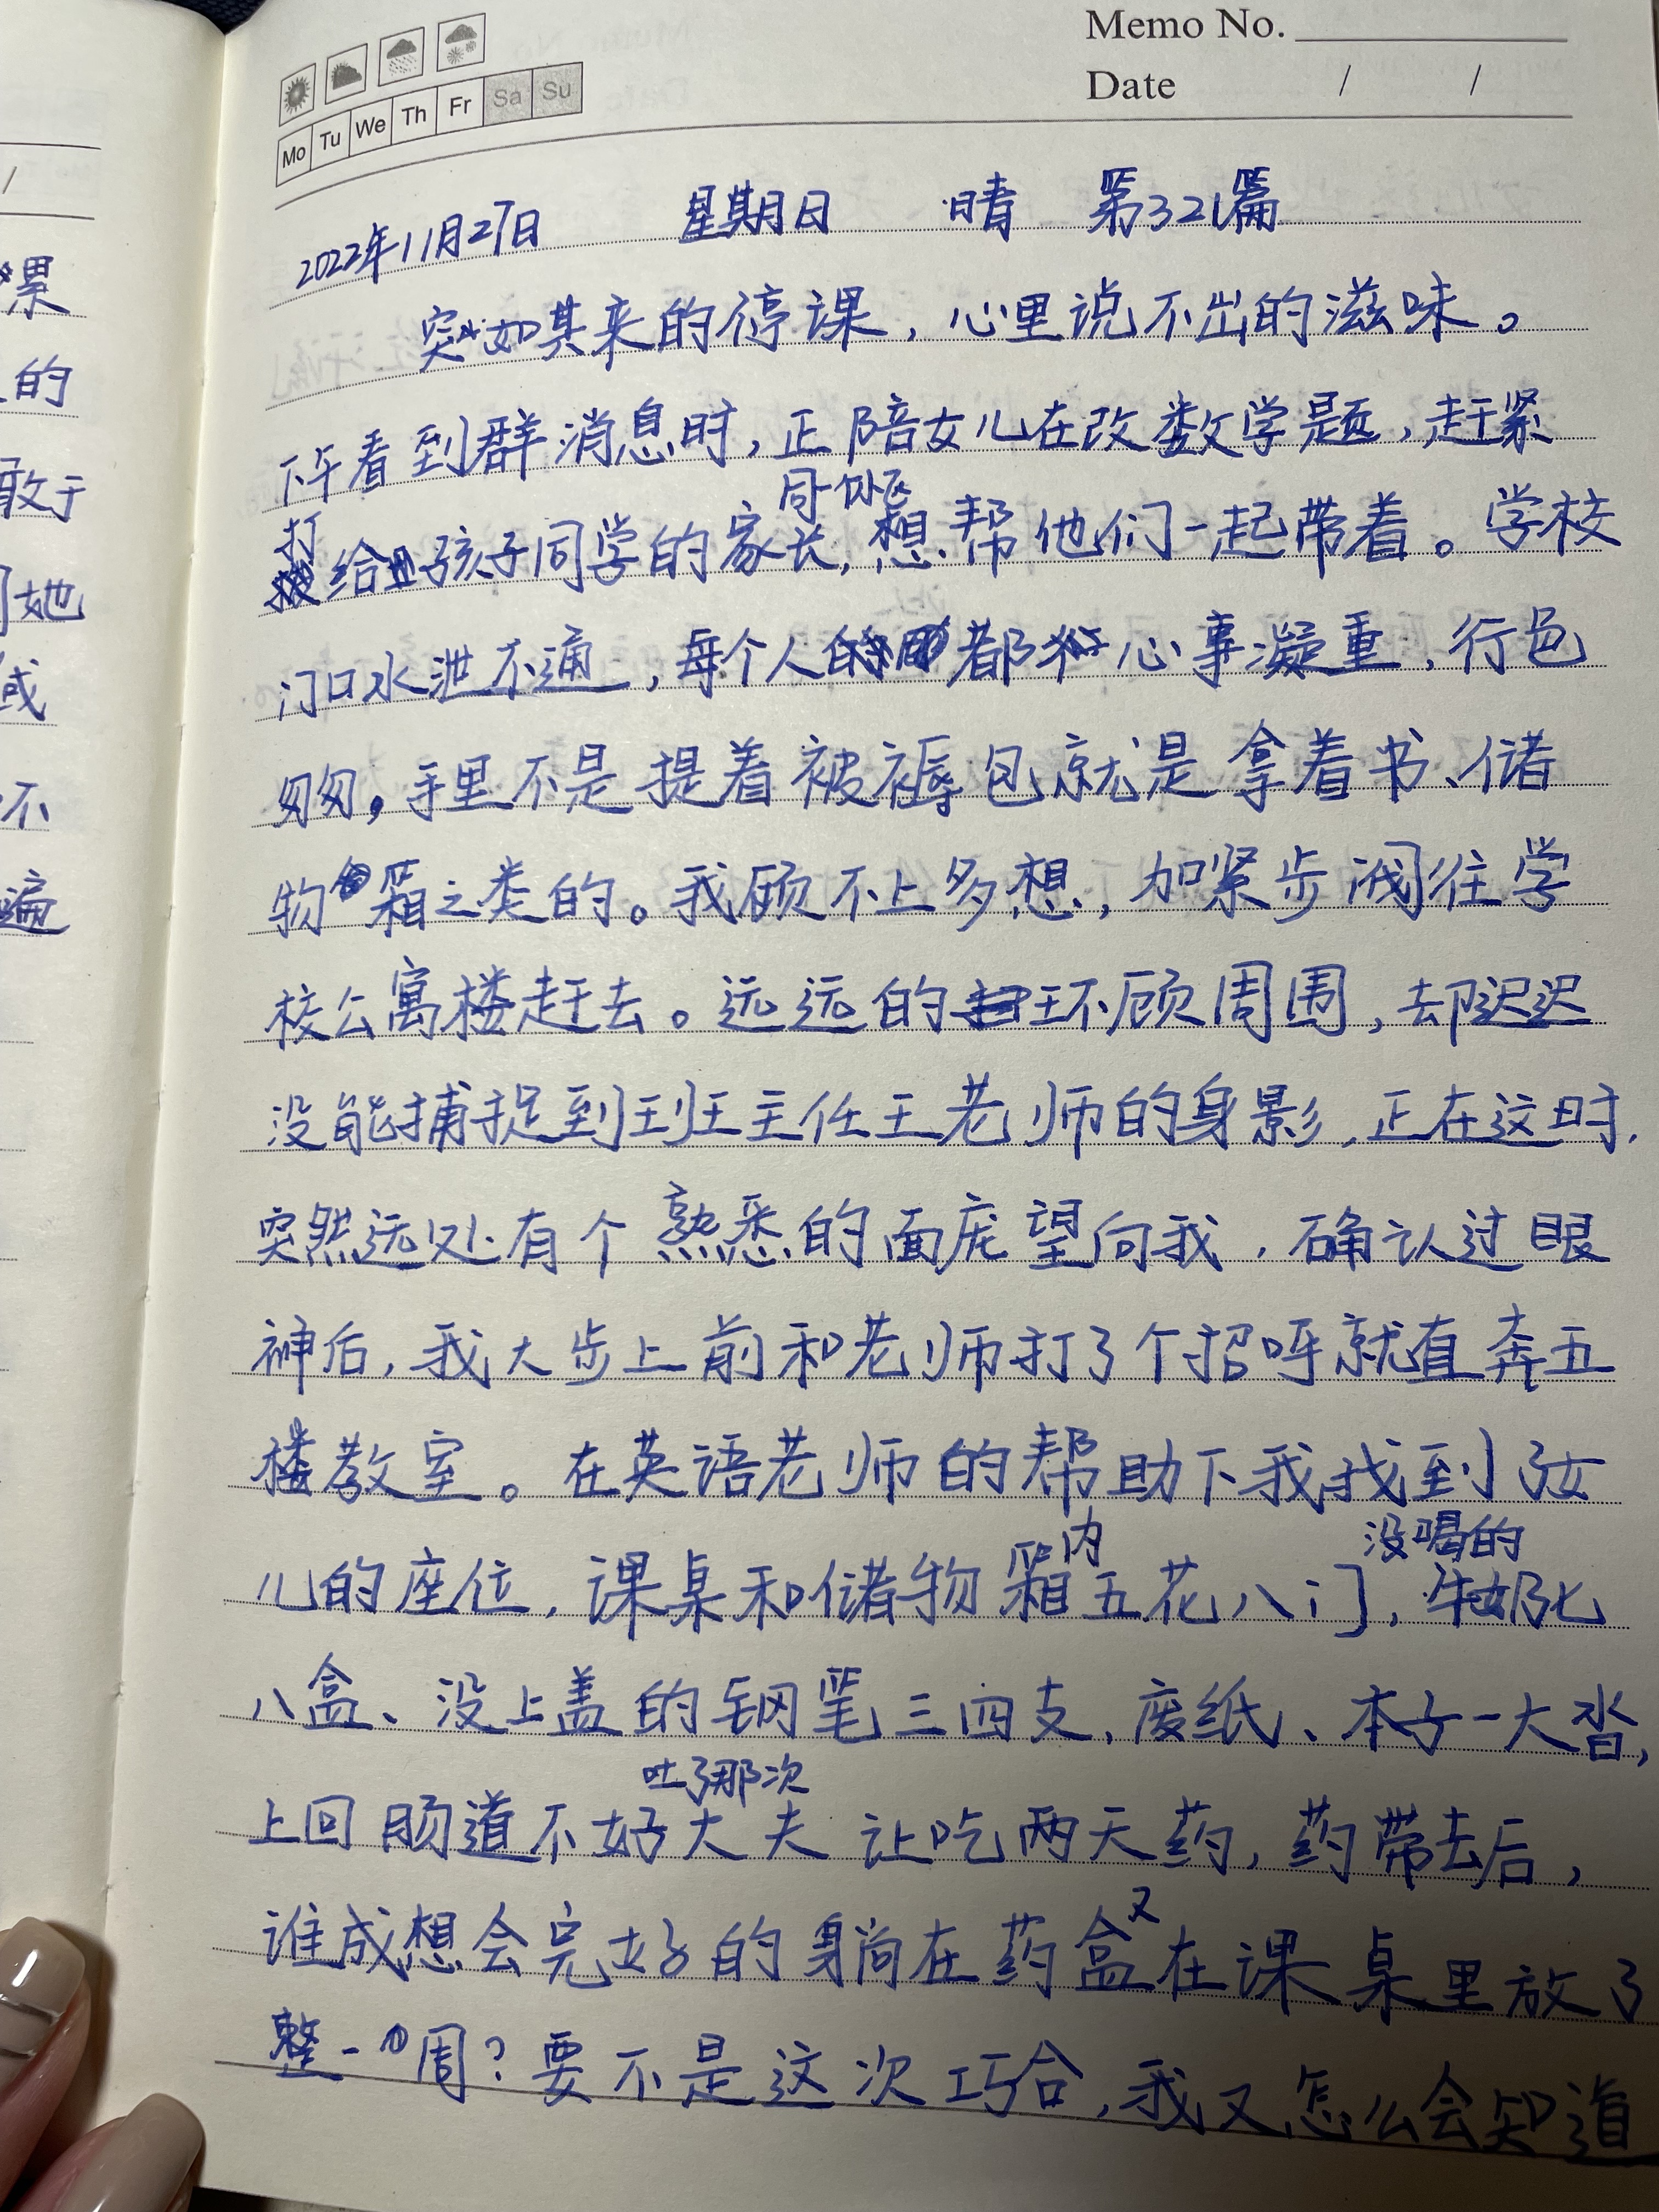 Memo No.
Date / /
Mo Tu We Th Fr Sa Su
2022年11月27日 星期日 晴 第321篇
突如其来的停课，心里说不出的滋味。
下午看到群消息时，正陪女儿在改数学题，赶紧
打给孩子同学的家长，想帮他们一起带着。学校
门口水泄不通，每个人都心事凝重，行色
匆匆。手里不是提着被褥包就是拿着书、储
物箱之类的。我顾不上多想，加紧步阀往学
校公寓楼赶去。远远的环顾周围，却迟迟
没能捕捉到班主任王老师的身影，正在这时，
突然远处有个熟悉的面庞望向我，确认过眼
神后，我大步上前和老师打了个招呼就直奔五
楼教室。在英语老师的帮助下我找到了女
没喝的
儿的座位，课桌和储物箱内五花八门，牛奶七
八盒、没上盖的钢笔三四支、废纸、本子一大沓，
吐了那次
上回肠道不好大夫让吃两天药，药带去后，
谁成想会完好的躺在药盒又在课桌里放了
整一周？要不是这次巧合，我又怎么会知道
累
的
敢于
她
或
不
遍